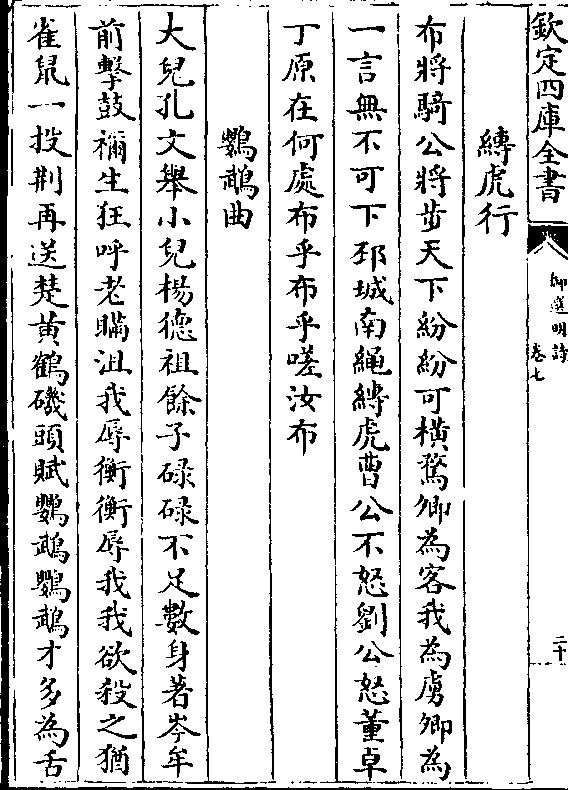 欽定四庫全書
御選明詩
卷七
二十
縛虎行
布將騎公將步天下紛紛可橫騖卿為客我為虜卿為
一言無不可下邳城南繩縛虎曹公不怒劉公怒董卓
丁原在何處布乎布乎嗟汝布
鸚鵡曲
大兒孔文舉小兒楊德祖餘子碌碌不足數身著岑牟
前擊鼓禰生狂呼老瞞沮我辱衡衡辱我我欲殺之猶
雀鼠一投荆再送楚黃鶴磯頭賦鸚鵡鸚鵡才多為舌